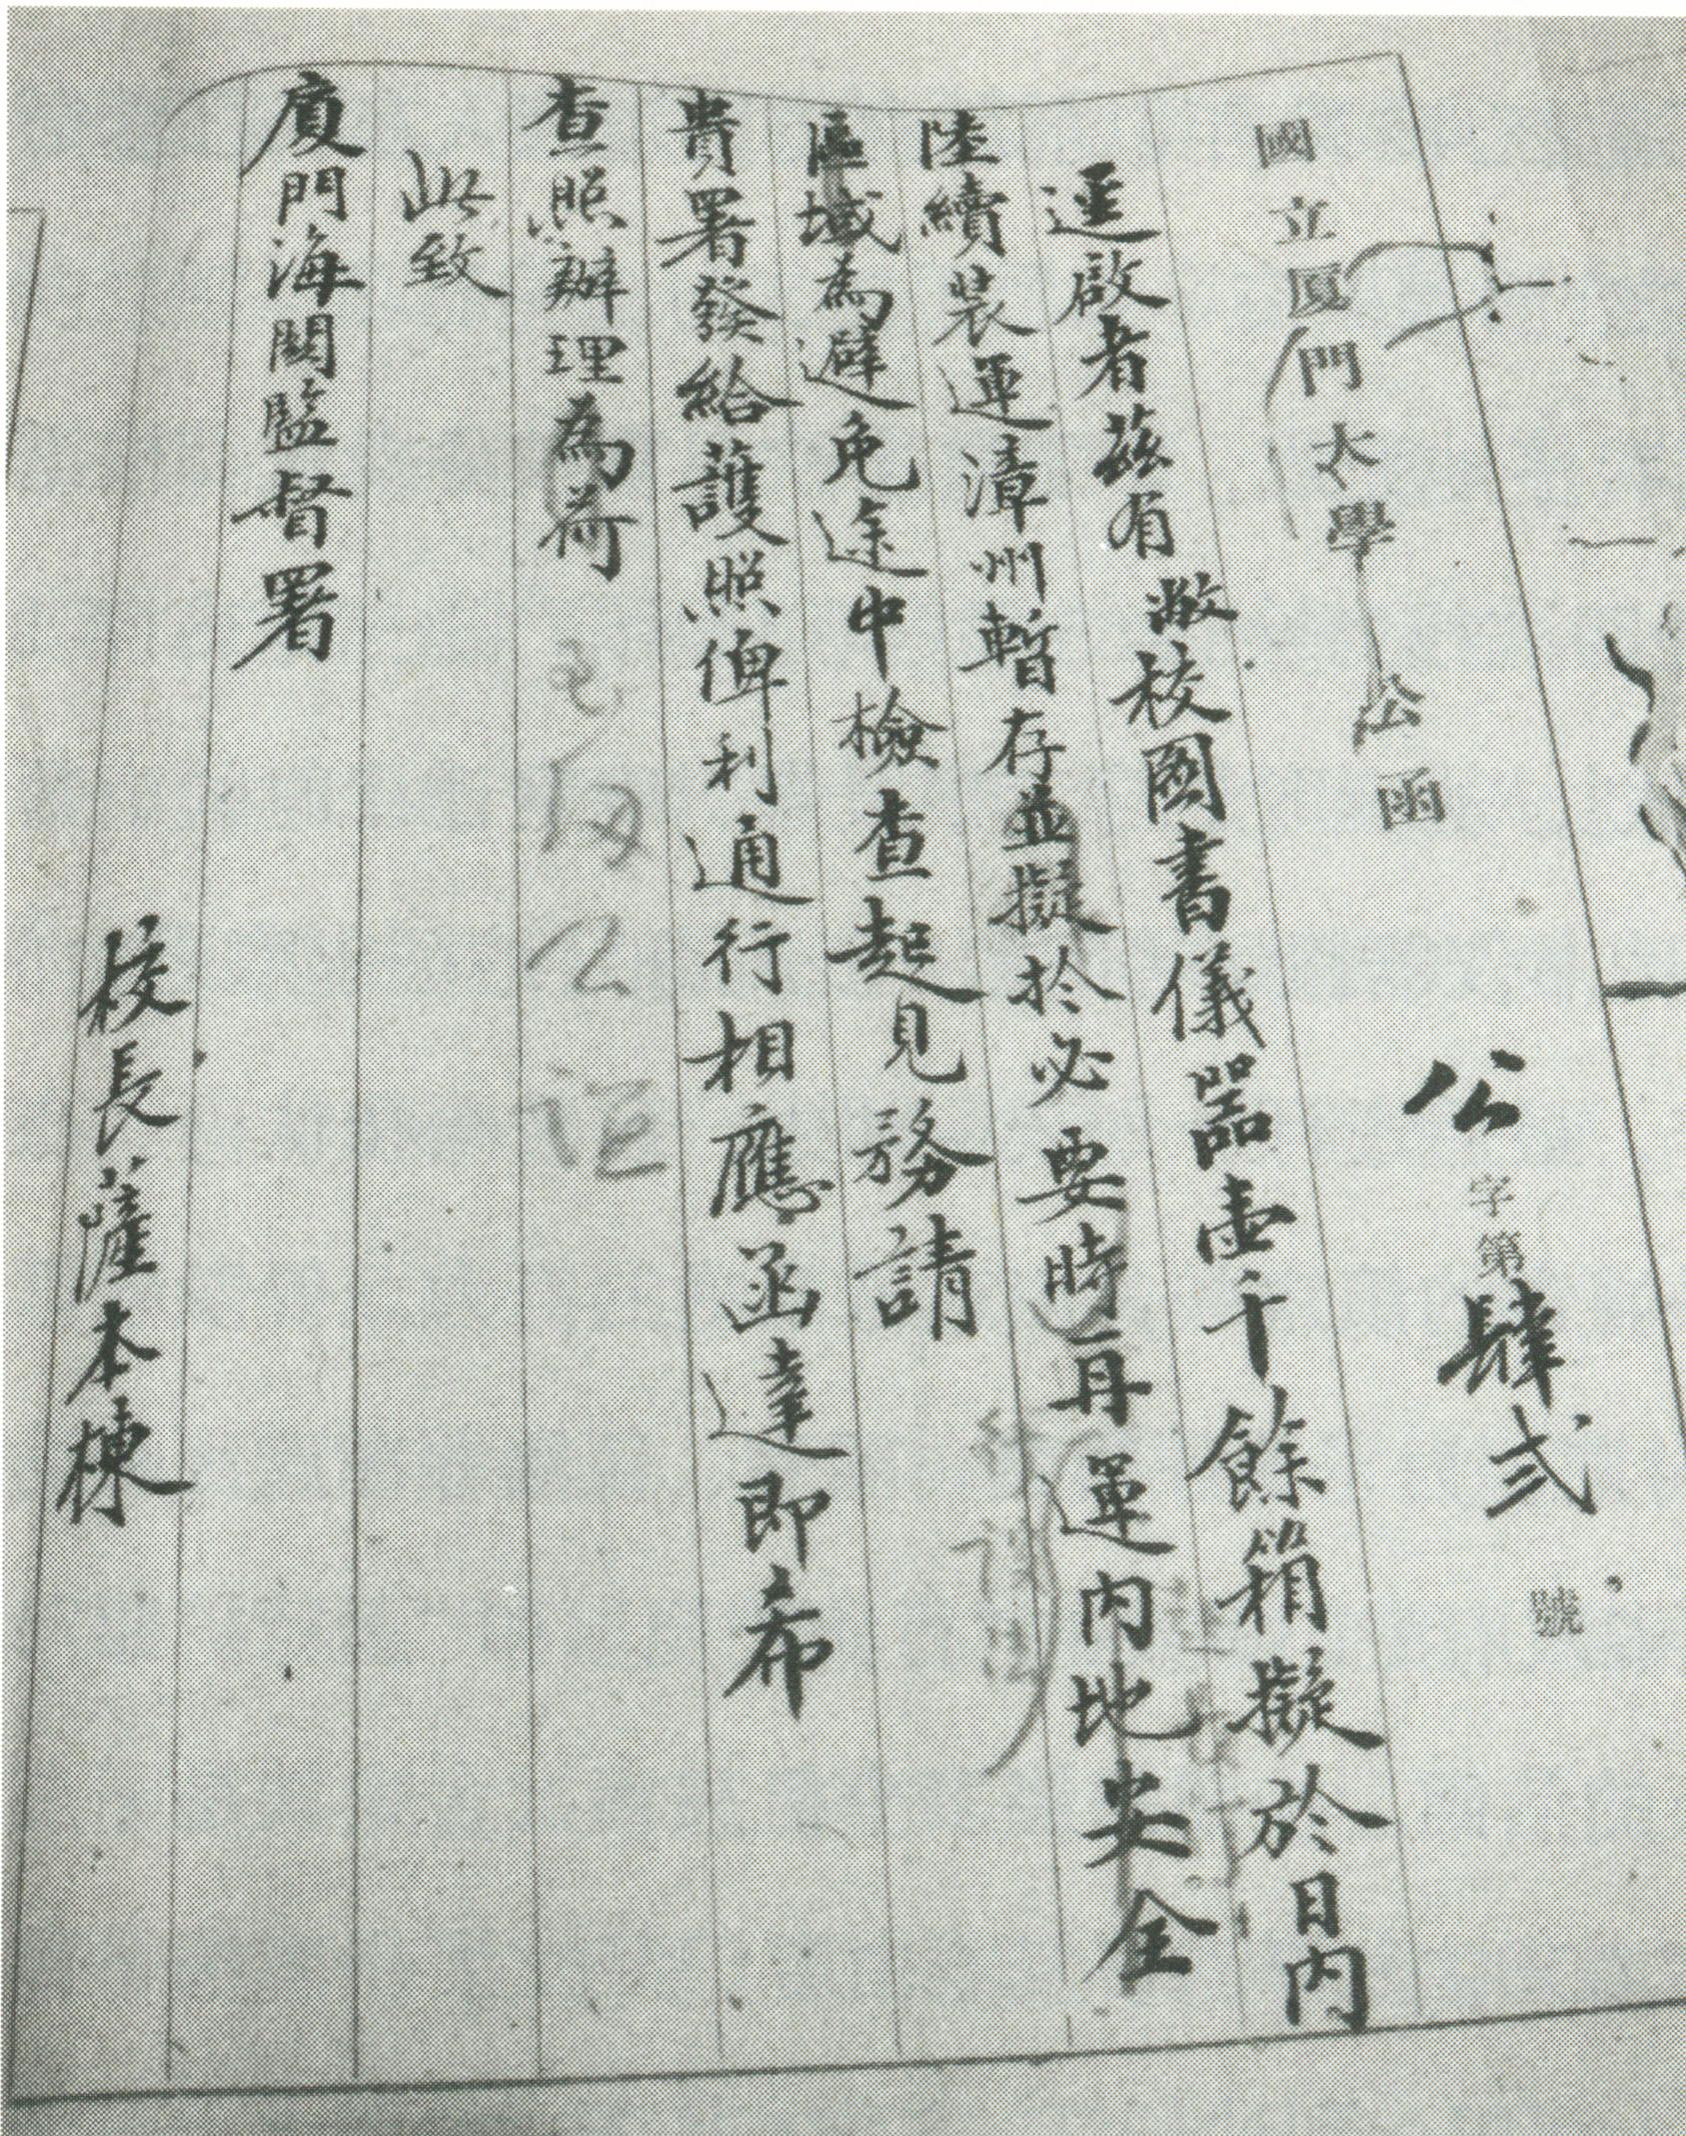 國立厦門大學公函
公字第肆弍號
逕啟者茲有敝校圖書儀器壺千餘箱擬於日內
陸續裝運漳州暫存並擬於必要時再運內地安全
區域為避免途中檢查起見務請
貴署發給護照俾利通行相應函達即希
查照辦理為荷
此致
廈門海關監督署
校長薩本棟